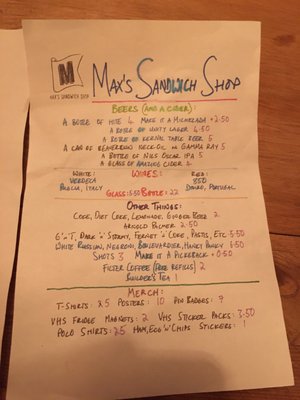 M
MAX'S SANDWICH SHOP
MAX'S SANDWICH SHOP
BEERS (AND A CIDER):
A BOTTLE OF MITE 4 MAKE IT A MICHELADA +2.50
A BOTTLE OF UNITY LAGER 4.50
A BOTTLE OF KERNEL TABLE BEER 5
A CAN OF BEAVERTOWN NECK OIL OR GAMMA RAY 5
A BOTTLE OF NILS OSCAR IPA 5
A GLASS OF AMAZING CIDER 4
WINES:
WHITE:
VERDECA
PUGLIA, ITALY
RED:
350
DOURO, PORTUGAL
GLASS: 5.50 BOTTLE: 22
OTHER THINGS:
COKE, DIET COKE, LEMONADE, GINGER BEER 2
ARNOLD PALMER 2.50
G'N'T, DARK 'N' STORMY, FERNET 'N' COKE, PASTIS, ETC 5.50
WHITE RUSSIAN, NEGRONI, BOULEVARDIER, HANKY PANKY 6.50
SHOTS 3 MAKE IT A PICKLEBACK +0.50
FILTER COFFEE (FREE REFILLS) 2
BUILDER'S TEA 1
MERCH:
T-SHIRTS: 25 POSTERS: 10 PIN BADGES: 7
VHS FRIDGE MAGNETS: 2 VHS STICKER PACKS: 3.50
POLO SHIRTS: 25 HAM, EGG 'N' CHIPS STICKERS: 1